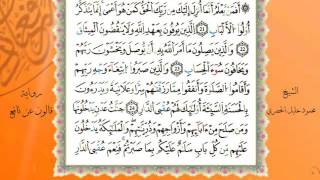 أَفَمَنْ يَعْلَمُ أَنَّمَا أُنزِلَ إِلَيْكَ مِن رَّبِّكَ الْحَقُّ كَمَنْ هُوَ أَعْمَىٰ إِنَّمَا يَتَذَكَّرُ
أُوْلُوا الْأَلْبَٰبِ الَّذِينَ يُوفُونَ بِعَهْدِ اللَّهِ وَلَا يَنقُضُونَ الْمِيثَٰقَ
وَالَّذِينَ يَصِلُونَ مَا أَمَرَ اللَّهُ بِهِ أَن يُوصَلَ وَيَخْشَوْنَ رَبَّهُمْ
وَيَخَافُونَ سُوءَ الْحِسَابِ وَالَّذِينَ صَبَرُوا ابْتِغَاءَ وَجْهِ رَبِّهِمْ
وَأَقَامُوا الصَّلَوٰةَ وَأَنفَقُوا مِمَّا رَزَقْنَٰهُمْ سِرًّا وَعَلَانِيَةً وَيَدْرَءُونَ
بِالْحَسَنَةِ السَّيِّئَةَ أُوْلَٰئِكَ لَهُمْ عُقْبَى الدَّارِ جَنَّٰتُ عَدْنٍ يَدْخُلُونَهَا
وَمَن صَلَحَ مِنْ ءَابَائِهِمْ وَأَزْوَٰجِهِمْ وَذُرِّيَّٰتِهِمْ وَالْمَلَٰئِكَةُ يَدْخُلُونَ
عَلَيْهِم مِّن كُلِّ بَابٍ سَلَٰمٌ عَلَيْكُم بِمَا صَبَرْتُمْ فَنِعْمَ عُقْبَى الدَّارِ
الشيخ
محمود خليل الحصري
رواية
قالون عن نافع